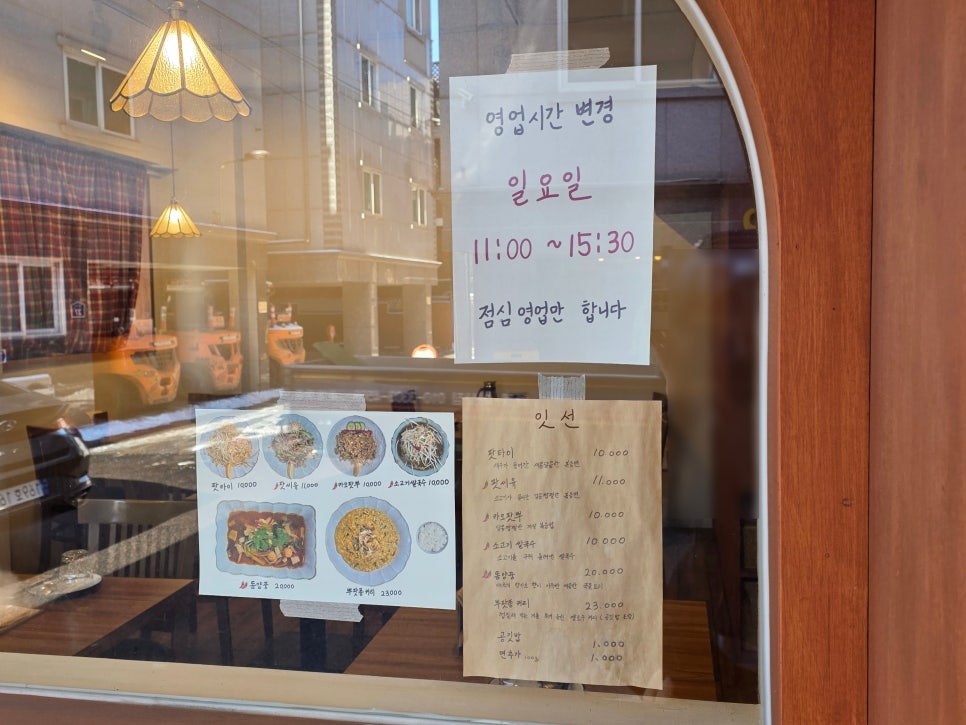 영업시간 변경
일요일
11:00 ~15:30
점심 영업만 합니다
팟타이 10,000
팟씨유 11,000
카오팟뿌 10,000
소고기쌀국수 10,000
똠얌꿍 20,000
뿌팟퐁커리 23,000
잇선
팟타이 10.000
팟씨유 11.000
카오팟뿌 10.000
소고기 쌀국수 10.000
똠얌꿍 20.000
뿌팟퐁커리 23.000
공깃밥 1.000
면추가 100g 1.000